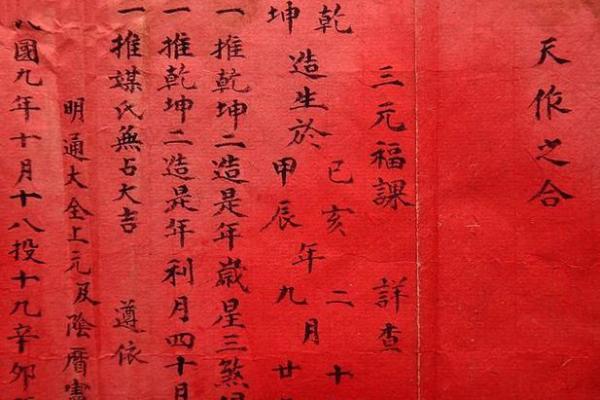 天作之合
三元福課 詳查
乾 已亥 二 十
造生於 年 月
坤 甲辰 九 廿
一推乾坤二造是年歲星三煞
一推乾坤二造是年利月四十日
一推媒氏無占大吉 遵依
明通大全上元及陰曆憲
國九年十月十八投十九辛卯